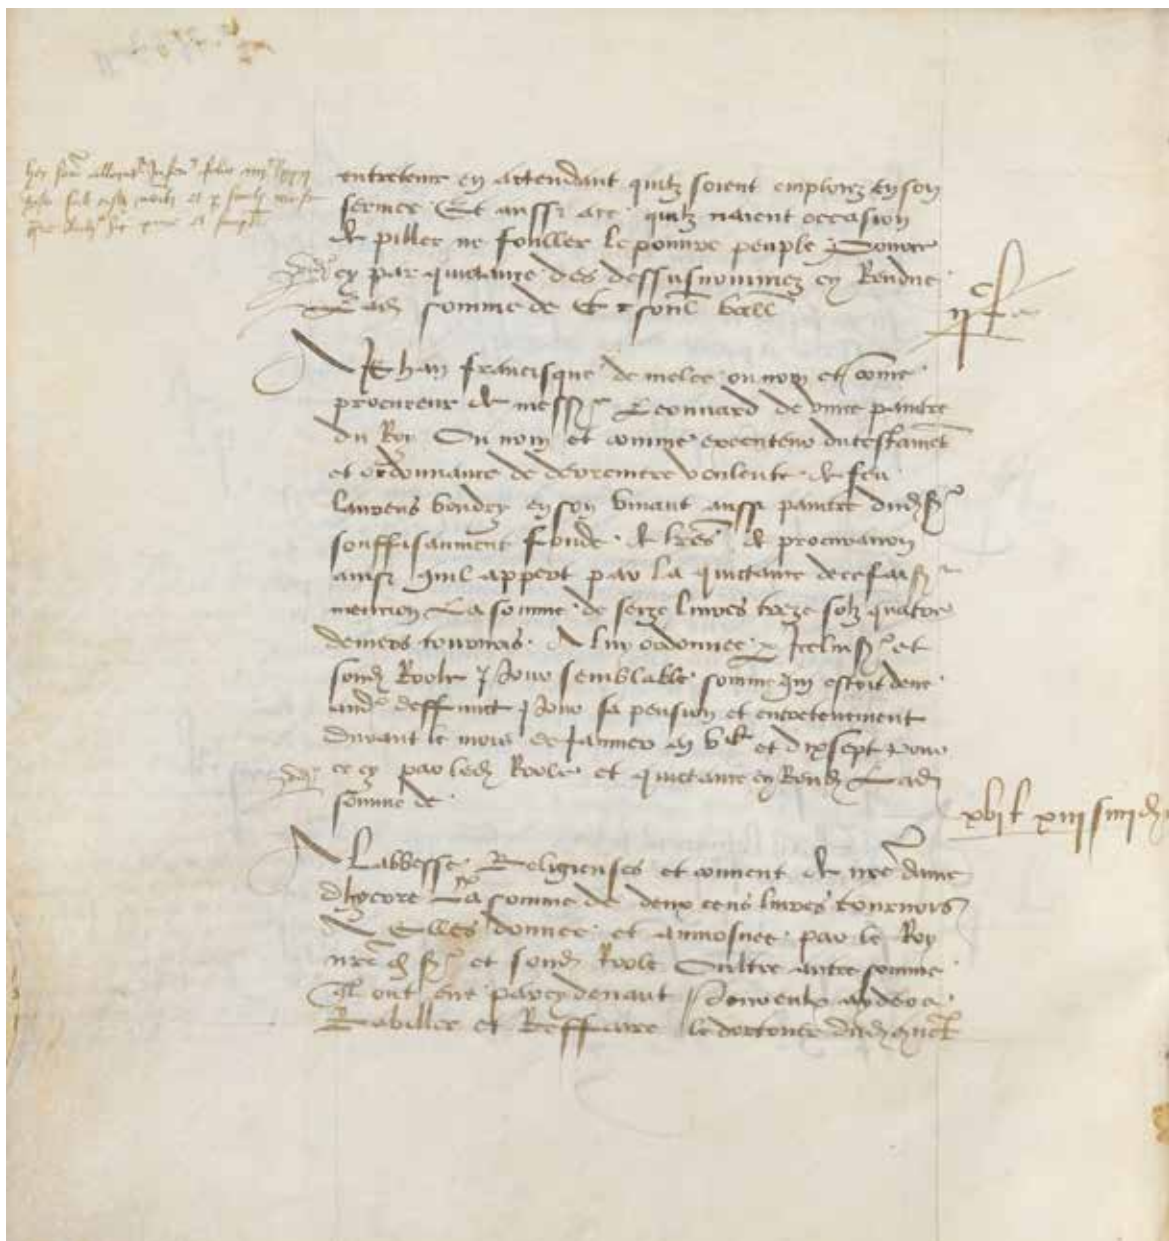 entretenir en attendant quilz soient emploiez en son
service Et aussi a ce quilz naient occasion
de piller ne fouller le pouvre peuple Pource
cy par quictance des dessusnommez cy Rendue
Lad somme de
IIc l
A Jehan francisque de melce ou nom et come
procureur de mess Leonnard de vince paintre
du Roy Ou nom et comme executeur du testament
et ordonnance de derreniere voulente de feu
laurens bondry en son vivant aussi paintre dud sr
souffisanment fonde de lres de procuracion
ainsi quil appert par la quictance
mention La somme de seize livres treze solz quatre
deniers tournois A luy ordonnee p Icelui sr et
sond Roole pour semblable somme qui estoit deue
aud deffunct pour sa pension et entretenement
durant le mois de Janvier m vc et dixsept Pour
ce cy par led Roole et quictance cy Rend Lad
somme de
xvi l xiii s iiii d
A Labbesse Religieuses et couvent de nre dame
dhyeere La somme de deux cens livres tournois
A Elles donnee et aumosnee par le Roy
nre d sr et sond Roole Oultre autre somme
ont eue par cy devant pour eulx ayder a
Rabiller et Reffaire le dortouer dud